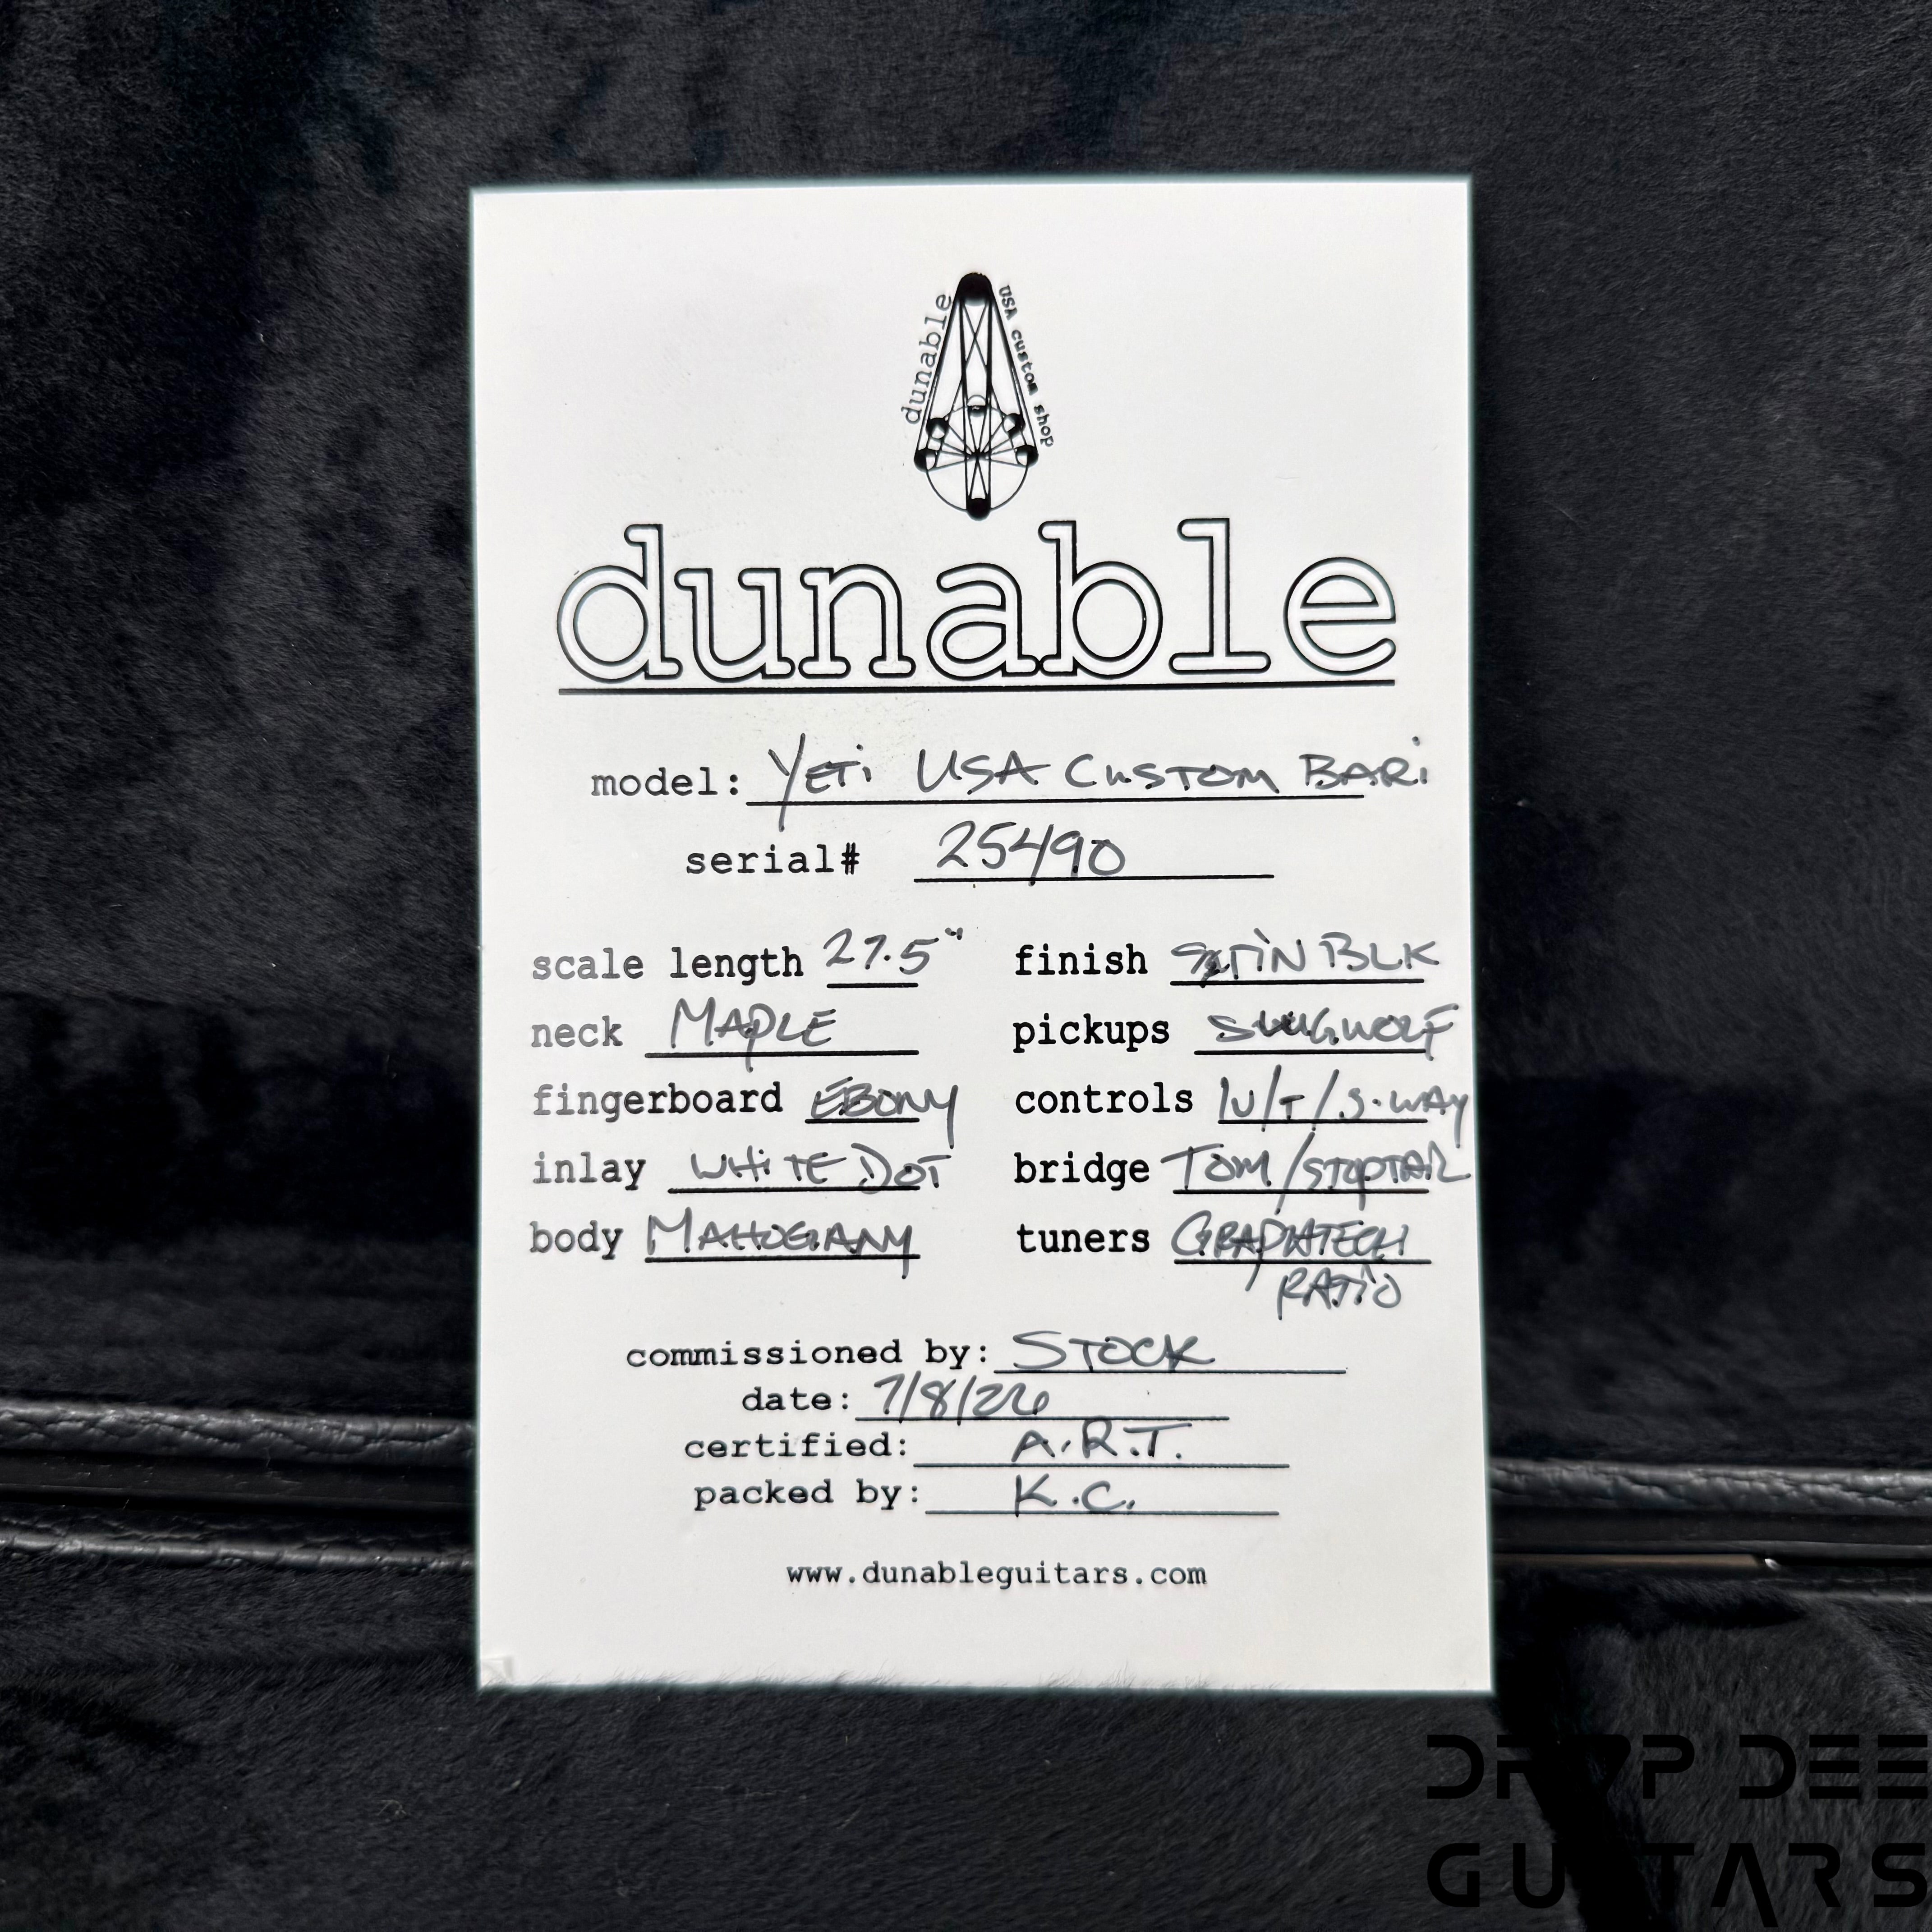 dunable USA custom shop
dunable
model: Yeti USA Custom Bari
serial# 25490
scale length 27.5" finish SATIN BLK
neck MAPLE pickups SWUGWOLF
fingerboard EBONY controls 1V/T/3-WAY
inlay WHITE DOT bridge TOM/STOPTAIL
body MAHOGANY tuners GRAPHTECH
RATIO
commissioned by: STOCK
date: 7/8/26
certified: A.R.T.
packed by: K.C.
www.dunableguitars.com
DROP DEE
GUITARS